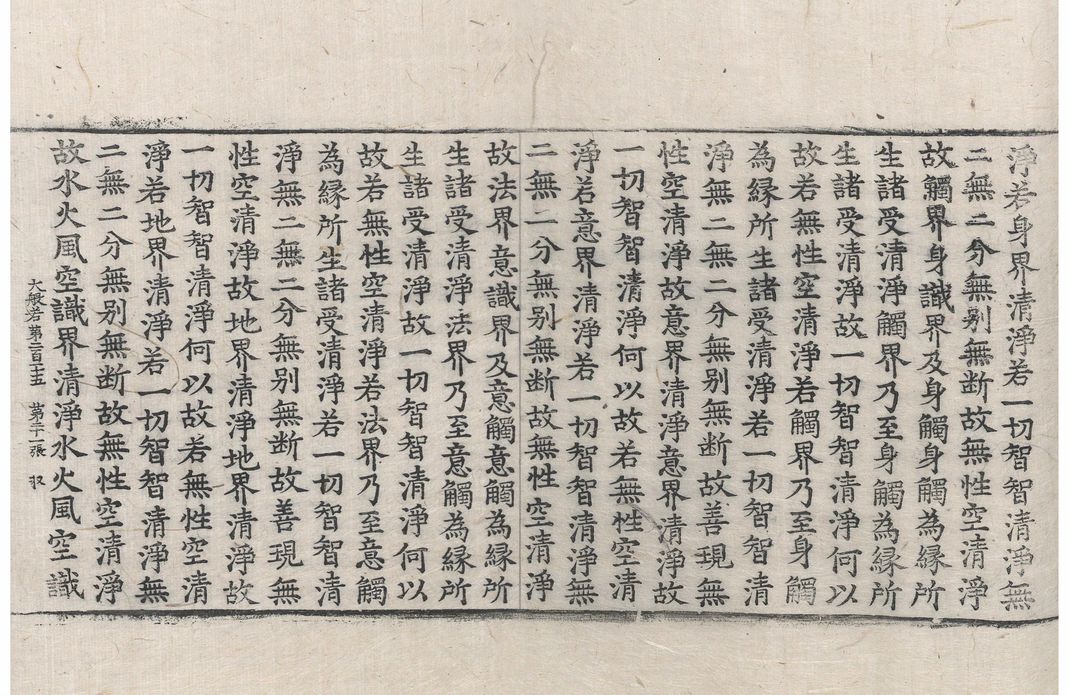 淨若身界清淨若一切智智清淨無
二無二分無别無断故無性空清淨
故觸界身識界及身觸身觸為縁所
生諸受清淨觸界乃至身觸為縁所
生諸受清淨故一切智智清淨何以
故若無性空清淨若觸界乃至身觸
為縁所生諸受清淨若一切智智清
淨無二無二分無别無断故善現無
性空清淨故意界清淨意界清淨故
一切智智清淨何以故若無性空清
淨若意界清淨若一切智智清淨無
二無二分無别無断故無性空清淨
故法界意識界及意觸意觸為縁所
生諸受清淨法界乃至意觸為縁所
生諸受清淨故一切智智清淨何以
故若無性空清淨若法界乃至意觸
為縁所生諸受清淨若一切智智清
淨無二無二分無别無断故善現無
性空清淨故地界清淨地界清淨故
一切智智清淨何以故若無性空清
淨若地界清淨若一切智智清淨無
二無二分無别無断故無性空清淨
故水火風空識界清淨水火風空識
大般若第二百二十五 第二十一張